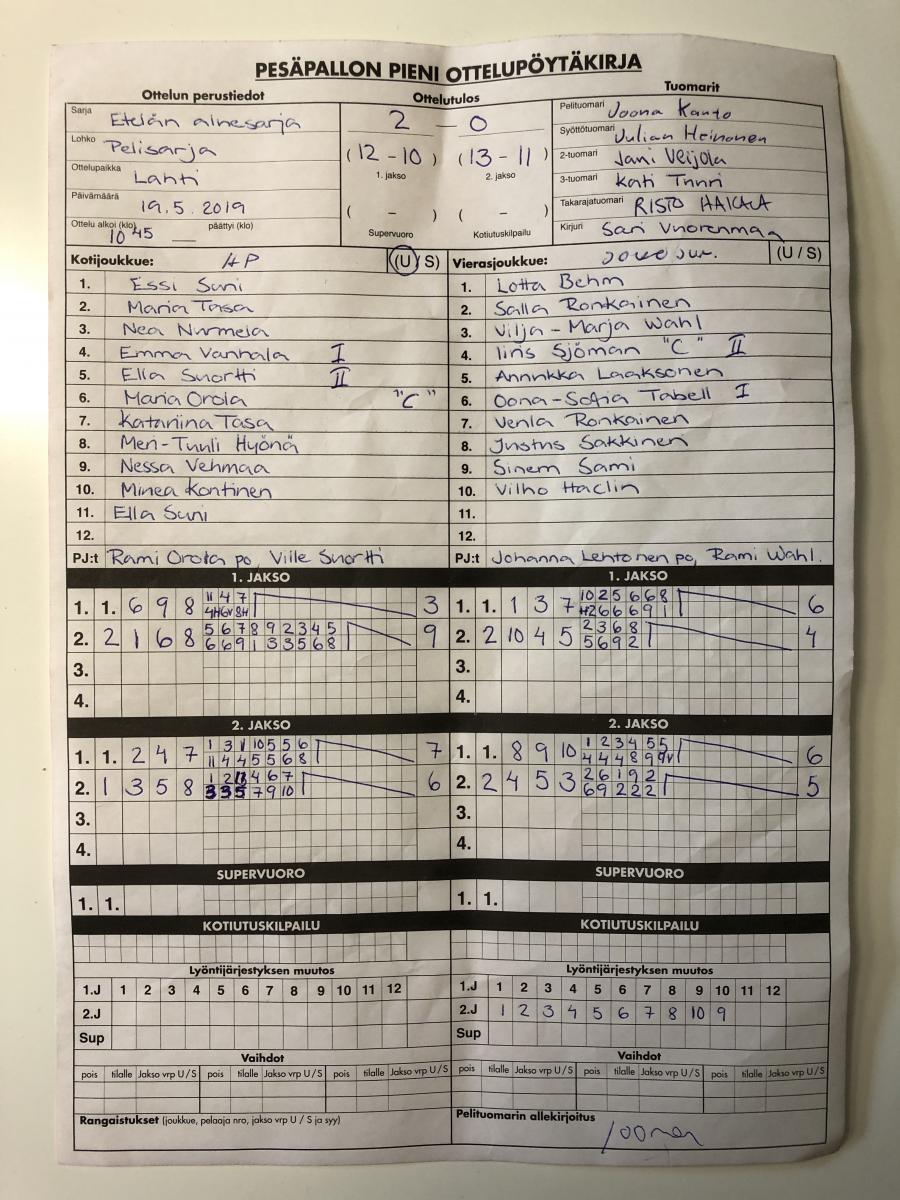 PESÄPALLON PIENI OTTELUPÖYTÄKIRJA
Ottelun perustiedot
Sarja Etelän aluesarja
Lohko Pelisarja
Ottelupaikka Lahti
Päivämäärä 19.5.2019
Ottelu alkoi (klo) 10 45 päättyi (klo)
Ottelutulos
2 - 0
(12 - 10) (13 - 11)
1. jakso 2. jakso
( - ) ( - )
Supervuoro Kotiutuskilpailu
Tuomarit
Pelituomari Joona Kanto
Syöttötuomari Julian Heinonen
2-tuomari Jani Veijola
3-tuomari Kati Tnnri
Takarajatuomari RISTO
Kirjuri Sari Vuorenmaa
Kotijoukkue: HP (U / S)
1. Essi Suni
2. Maria Tasa
3. Nea Nurmela
4. Emma Vanhala I
5. Ella Snortti II
6. Maria Orola "C"
7. Katariina Tasa
8. Meri-Tuuli Hyönä
9. Nessa Vehmaa
10. Minea Kontinen
11. Ella Suni
12.
PJ:t Rami Orola po, Ville Snortti
Vierasjoukkue: (U / S)
1. Lotta Behm
2. Salla Ronkainen
3. Vilja-Marja Wahl
4. Iiris Sjöman "C" II
5. Annukka Laaksonen
6. Oona-Sofia Tabell I
7. Venla Ronkainen
8. Justus Sakkinen
9. Sinem Sami
10. Vilho Haclin
11.
12.
PJ:t Johanna Lehtonen po, Rami Wahl.
1. JAKSO
1. 1. 6 9 8 11 4 7 3
2. 2 1 6 8 5 6 7 8 9 2 3 4 5 9
6 6 9 1 3 3 5 6 8
3.
4.
1. JAKSO
1. 1. 1 3 7 10 2 5 6 6 8 6
2. 2 10 4 5 2 3 6 8 4
5 6 9 2
3.
4.
2. JAKSO
1. 1. 2 4 7 1 3 1 10 5 5 6 7
11 4 4 5 5 6 8
2. 1 3 5 8 4 6 7 6
3 3 5 7 9 10
3.
4.
2. JAKSO
1. 1. 8 9 10 1 2 3 4 5 5 6
4 4 4 8 9
2. 2 4 5 3 2 6 1 9 2 5
6 9 2 2 2
3.
4.
SUPERVUORO
1. 1.
SUPERVUORO
1. 1.
KOTIUTUSKILPAILU
KOTIUTUSKILPAILU
Lyöntijärjestyksen muutos
1.J 1 2 3 4 5 6 7 8 9 10 11 12
2.J
Sup
Lyöntijärjestyksen muutos
1.J 1 2 3 4 5 6 7 8 9 10 11 12
2.J 1 2 3 4 5 6 7 8 10 9
Sup
Vaihdot
pois tilalle Jakso vrp U / S pois tilalle Jakso vrp U / S pois tilalle Jakso vrp U / S
Vaihdot
pois tilalle Jakso vrp U / S pois tilalle Jakso vrp U / S pois tilalle Jakso vrp U / S
Rangaistukset (joukkue, pelaaja nro, jakso vrp U / S ja syy)
Pelituomarin allekirjoitus